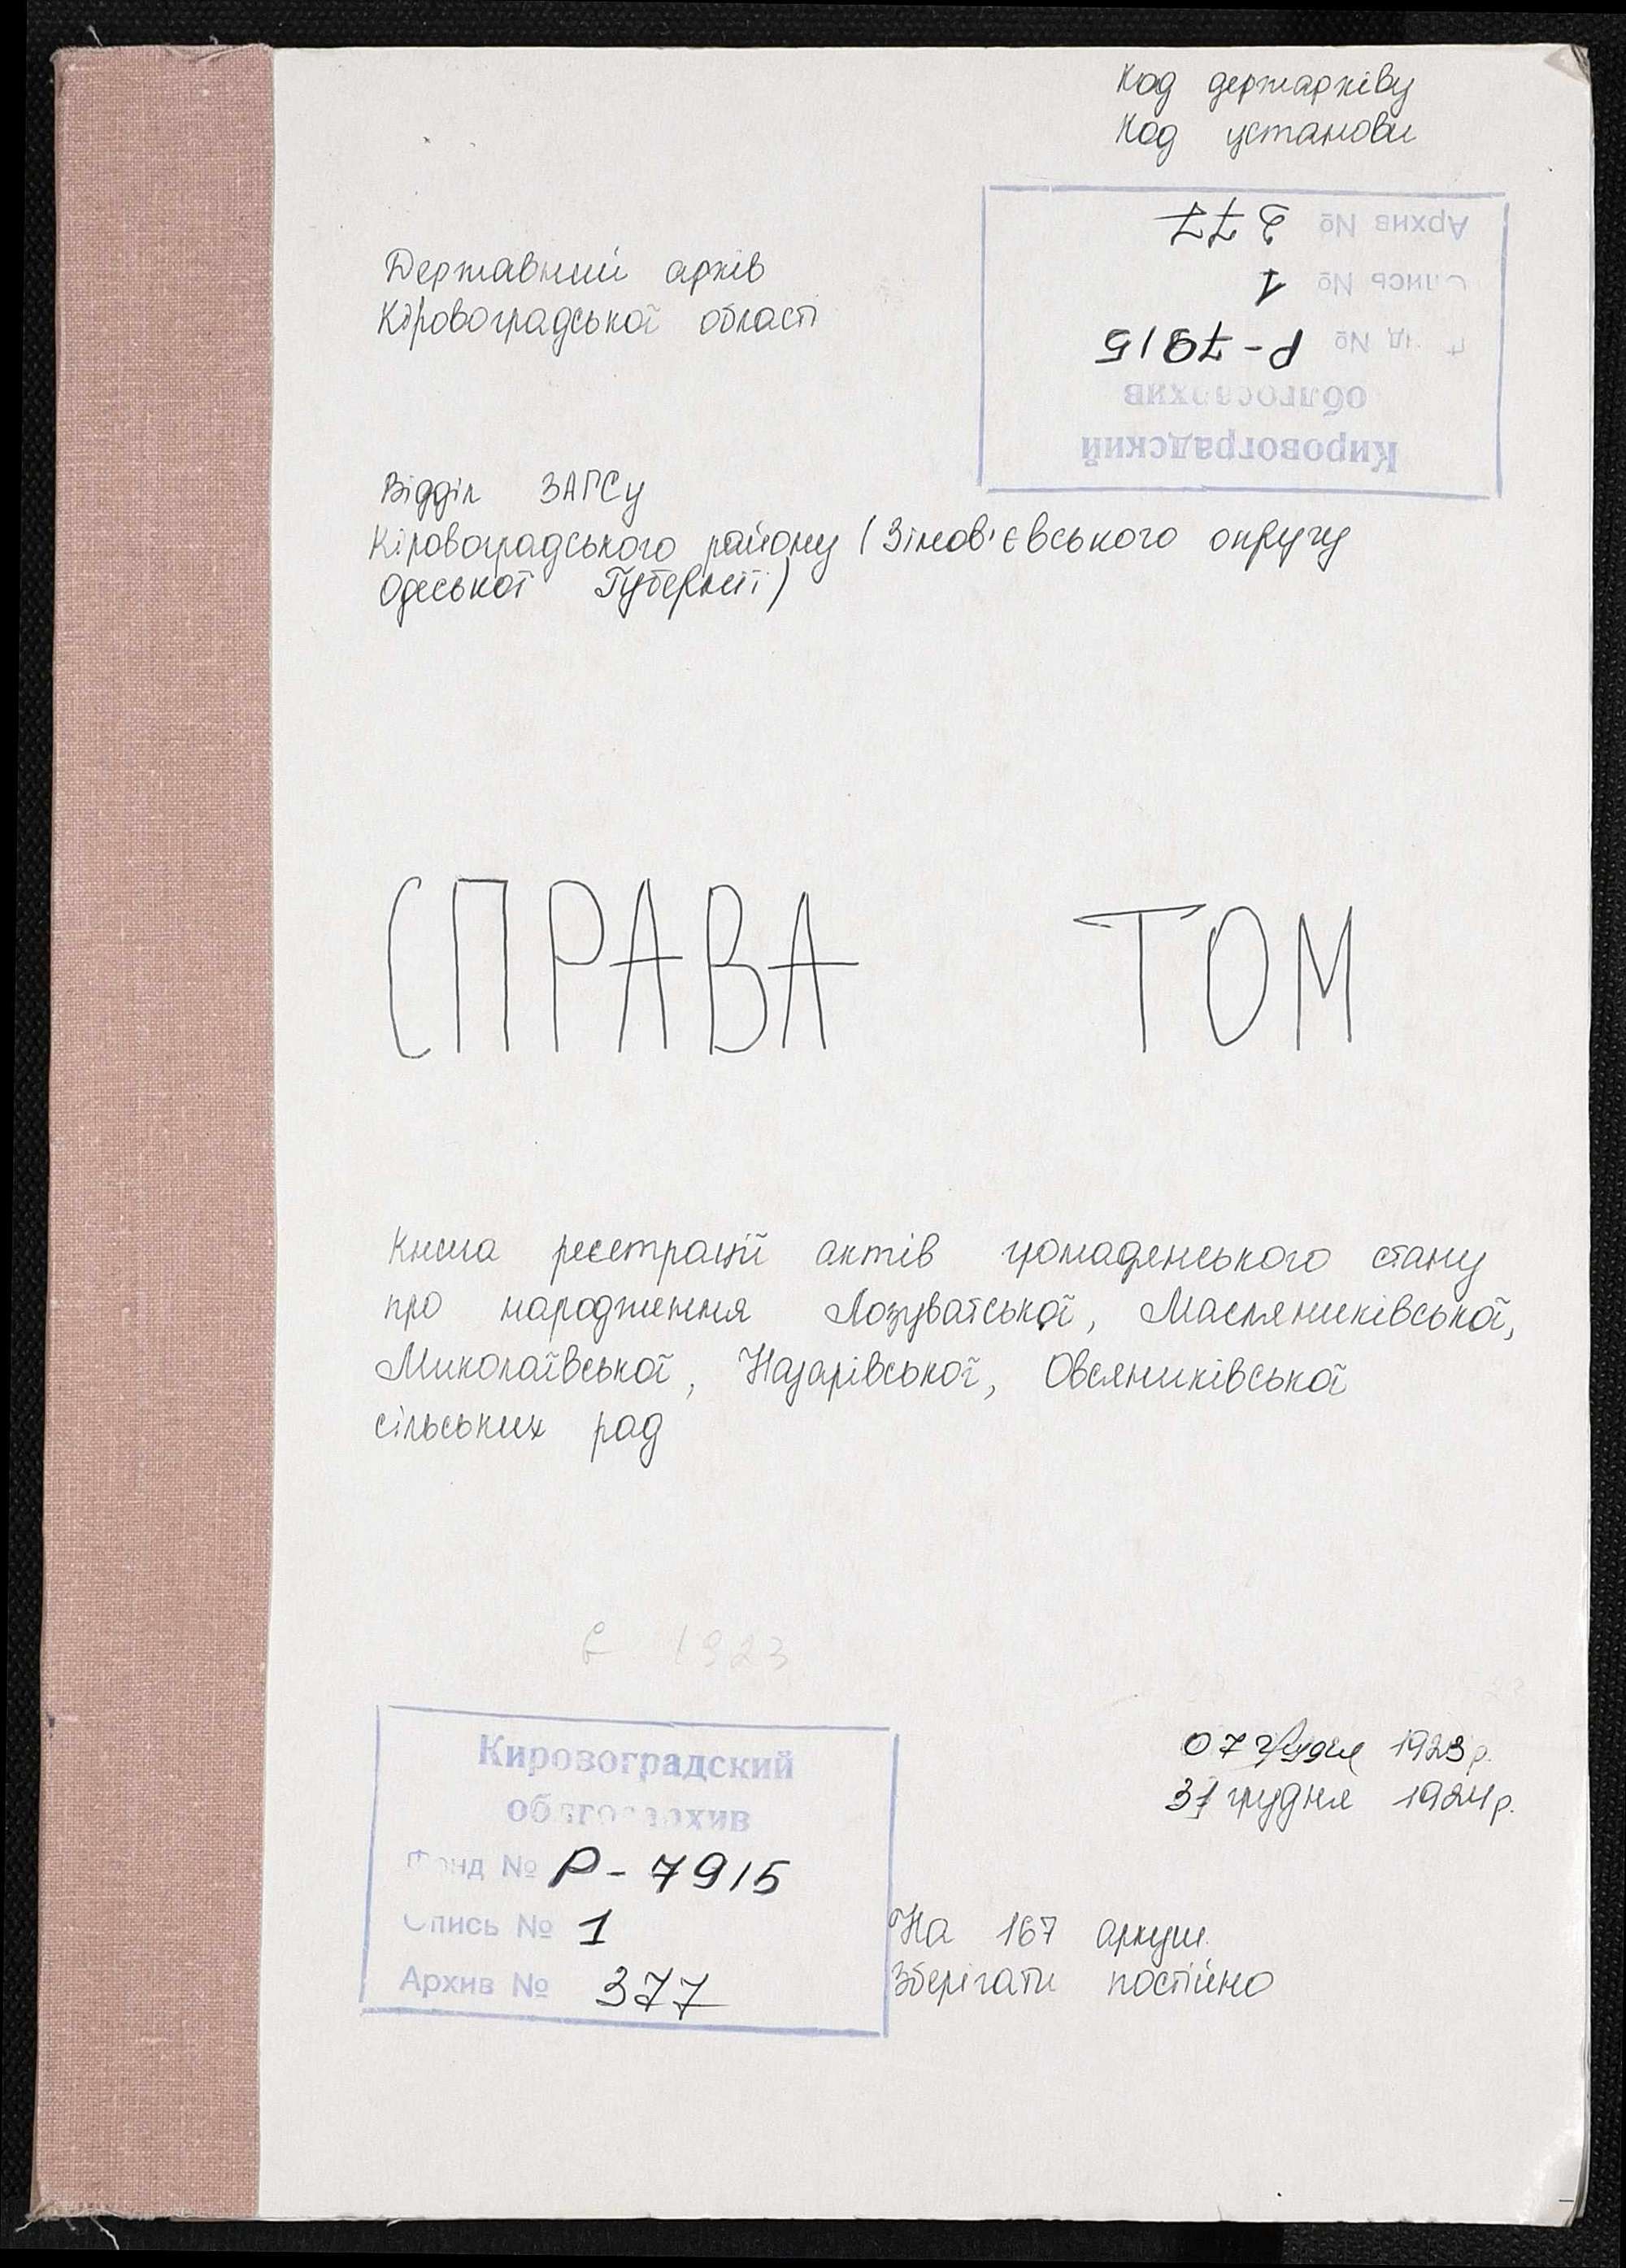 Код держархіву
Код установи
Архив № 377
Опись № 1
Фонд № Р-7915
облгосархив
Кировоградский
Державний архів
Кіровоградської області
Відділ ЗАГСу
Кіровоградського району (Зінов'євського округу
Одеської Губернії)
СПРАВА ТОМ
Книга реєстрації актів громадянського стану
про народження Лозуватської, Масляниківської,
Миколаївської, Назарівської, Овсяниківської
сільських рад
1923
07 грудня 1923р.
31 грудня 1924р.
Кировоградский
облгосархив
Фонд № Р-7915
Опись № 1
Архив № 377
На 167 аркуш.
Зберігати постійно